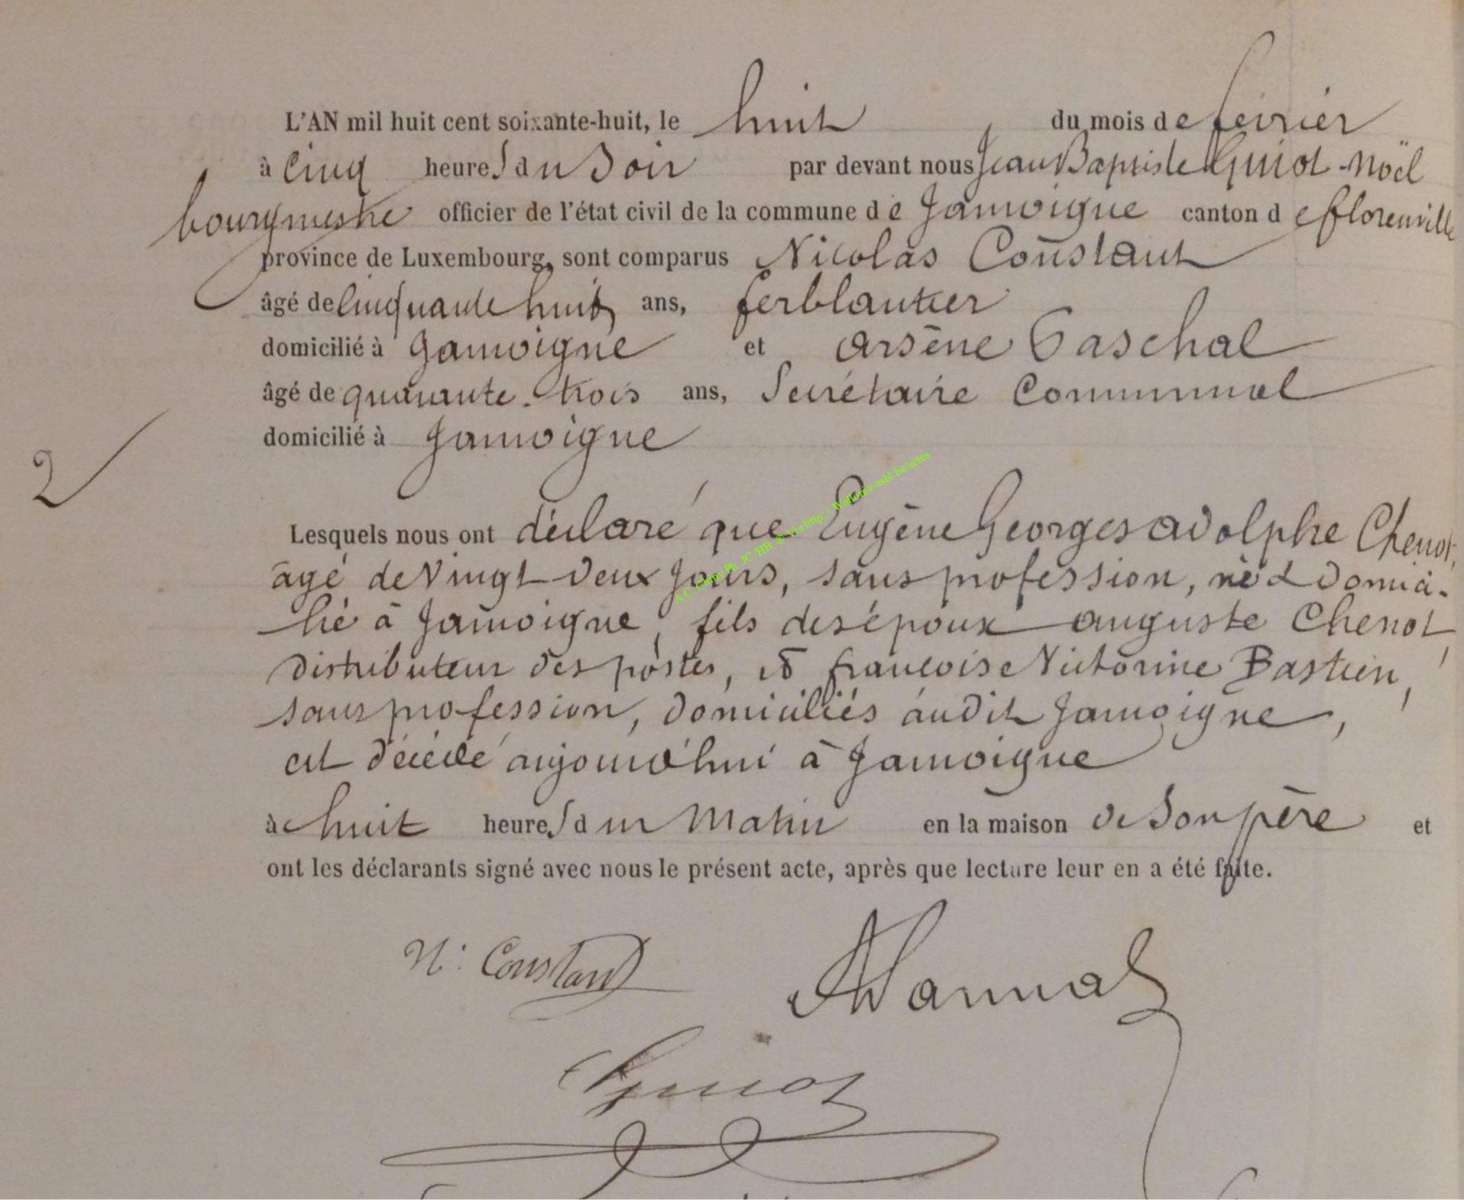 L'AN mil huit cent soixante-huit, le huit du mois de février
à cinq heures du Soir par devant nous Jean Baptiste Guiot-Noël
bourgmestre officier de l'état civil de la commune de Jamoigne canton de florenville
province de Luxembourg, sont comparus Nicolas Constant
âgé de cinquante huit ans, ferblantier
domicilié à Jamoigne et arsène Paschal
âgé de quarante-trois ans, Secrétaire Communal
domicilié à Jamoigne
2
Lesquels nous ont déclaré que Eugène Georges adolphe Chenot,
âgé de Vingt Deux Jours, sans profession, né & domici-
lié à Jamoigne, fils des époux auguste Chenot,
Distributeur des postes, et françoise Victorine Bastien,
sans profession, domiciliés audit Jamoigne,
est décédé aujourd'hui à Jamoigne
à huit heures du Matin en la maison de Son père et
ont les déclarants signé avec nous le présent acte, après que lecture leur en a été faite.
N. Constant
Guiot